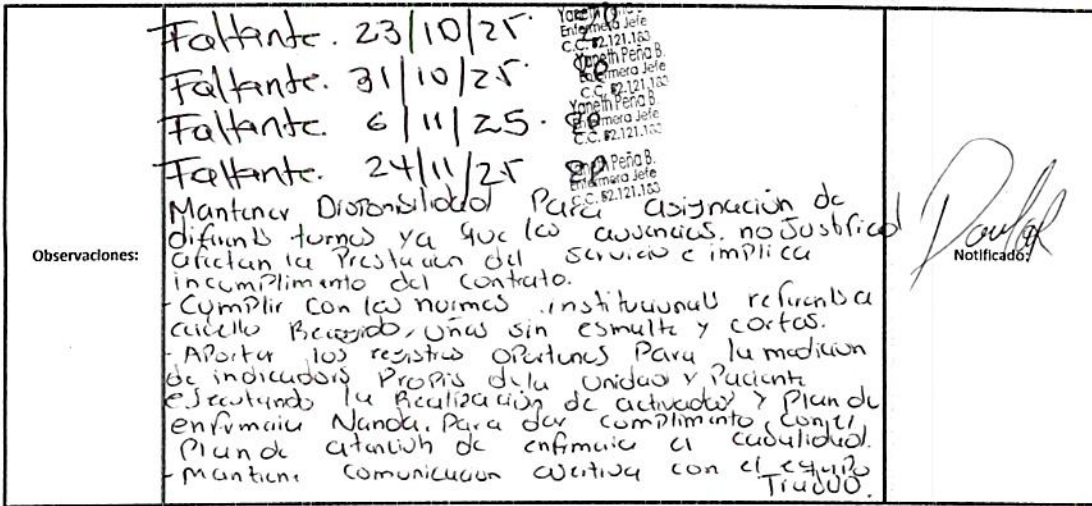 Faltante. 23/10/25
Enfermera Jefe
C.C. 52.121.183
Yaneth Peña B.
Faltante. 31/10/25
Enfermera Jefe
C.C. 52.121.183
Yaneth Peña B.
Faltante. 6/11/25.
Enfermera Jefe
C.C. 52.121.183
Faltante. 24/11/25
Peña B.
Enfermera Jefe
C.C. 52.121.183
Mantener Disponsilidad Para asignación de
difirents turnos ya que las ausencias. no Justificad
afectan la Prestacion del servicio e implica
incumplimento del contrato.
Observaciones:
Notificado:
- Cumplir con las normas institucionals referents a
cabello Recogido, uñas sin esmalte y cortas.
- Aportar los registros oportunos Para la medicion
de indicadors Propis dela unidad y Paciente
ejecutando la Realización de actividades y Plan de
enfermeria Nanda. Para dar cumplimento con el
Plan de atención de enfermeria a cabalidad.
- mantene comunicacion asertiva con el equipo